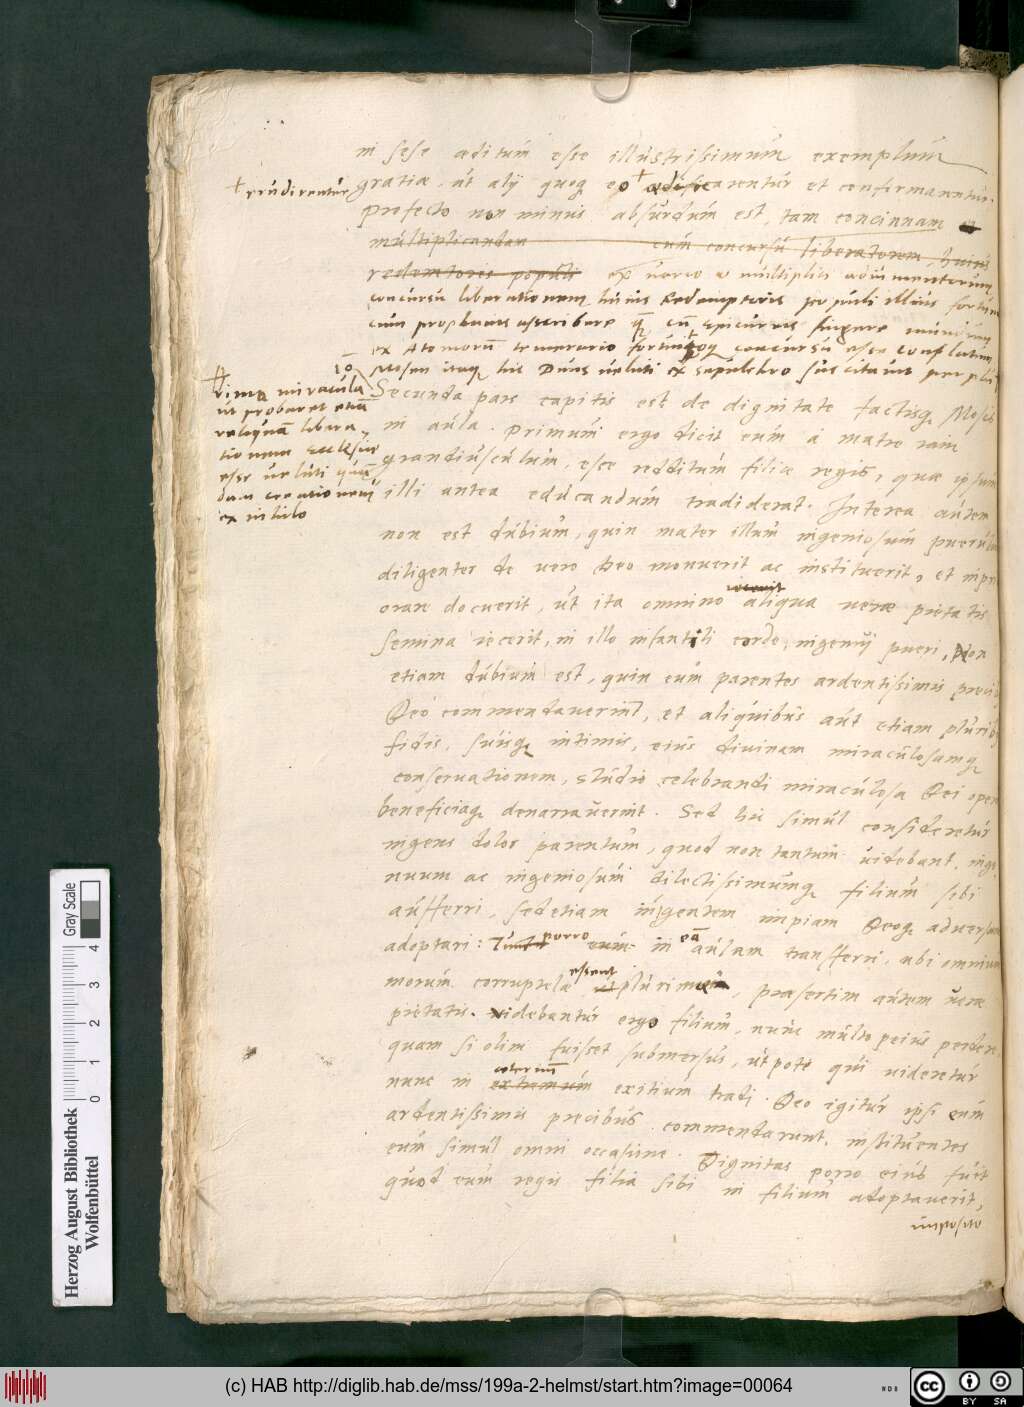 in sese aditum esse illustrissimum exemplum
+ erudirentur
gratiae, ut alij quoq eo + aedificarentur et confirmarentur.
Profecto non minus absurdum est, tam concinnam
multiplicandam cum concursu liberatorem, huius
redemtoris populi ex vario ac multiplici
concursu liberationem huius Redemptoris populi illius
cum prophanis asscribere cum Epicureis fingere mundum
ex Atomorum temerario fortuitoq concursu esse conflatum
10
Mosen itaq hic Deus veluti ex sepulchro suscitavit
prima miracula
ut probaret etiam
reliquam libera
tionem Ecclesiae
esse veluti quan
dam creationem
ex nihilo
Secunda pars capitis est de dignitate factisq Mosis
in aula. Primum ergo dicit eum a matre iam
grandiusculum, esse redditum filiae regis, quae ipsum
illi antea educandum tradiderat. Interea autem
non est dubium, quin mater illum ingeniosum puerum
diligenter de vero Deo monuerit ac instituerit, et
orare docuerit, ut ita omnino aliqua verae pietatis
semina iecerit, in illo infantili corde ingenui pueri, Non
etiam dubium est, quin eum parentes ardentissimis
Deo commendaverint, et aliquibus aut etiam
fidis, suisq intimis, eius divinam miraculosamq
conservationem, studio celebrandi miraculosa Dei
beneficiaq denarraverint. Sed hic simul consideretur
ingens dolor parentum, quod non tantum videbant
nuum ac ingeniosum dilectissimumq filium sibi
aufferri, sed etiam in gentem impiam Deoq adversam
adoptari: porro eum in eam aulam transferri, ubi omnium
morum corruptelae essent plurimae, praesertim autem verae
pietatis. videbantur ergo filium, nunc multo peius perdere
quam si olim fuisset submersus, utpote qui videretur
nunc in extremum aeternum exitium tradi. Deo igitur ipsi eum
ardentissimis precibus commendarunt, instituentes
eum simul omni occasione. Dignitas porro eius fuit
quod eum regis filia sibi in filium adoptaverit,
imposito
Herzog August Bibliothek
Wolfenbüttel
0 1 2 3 4
Gray Scale
(c) HAB http://diglib.hab.de/mss/199a-2-helmst/start.htm?image=00064
cc BY SA